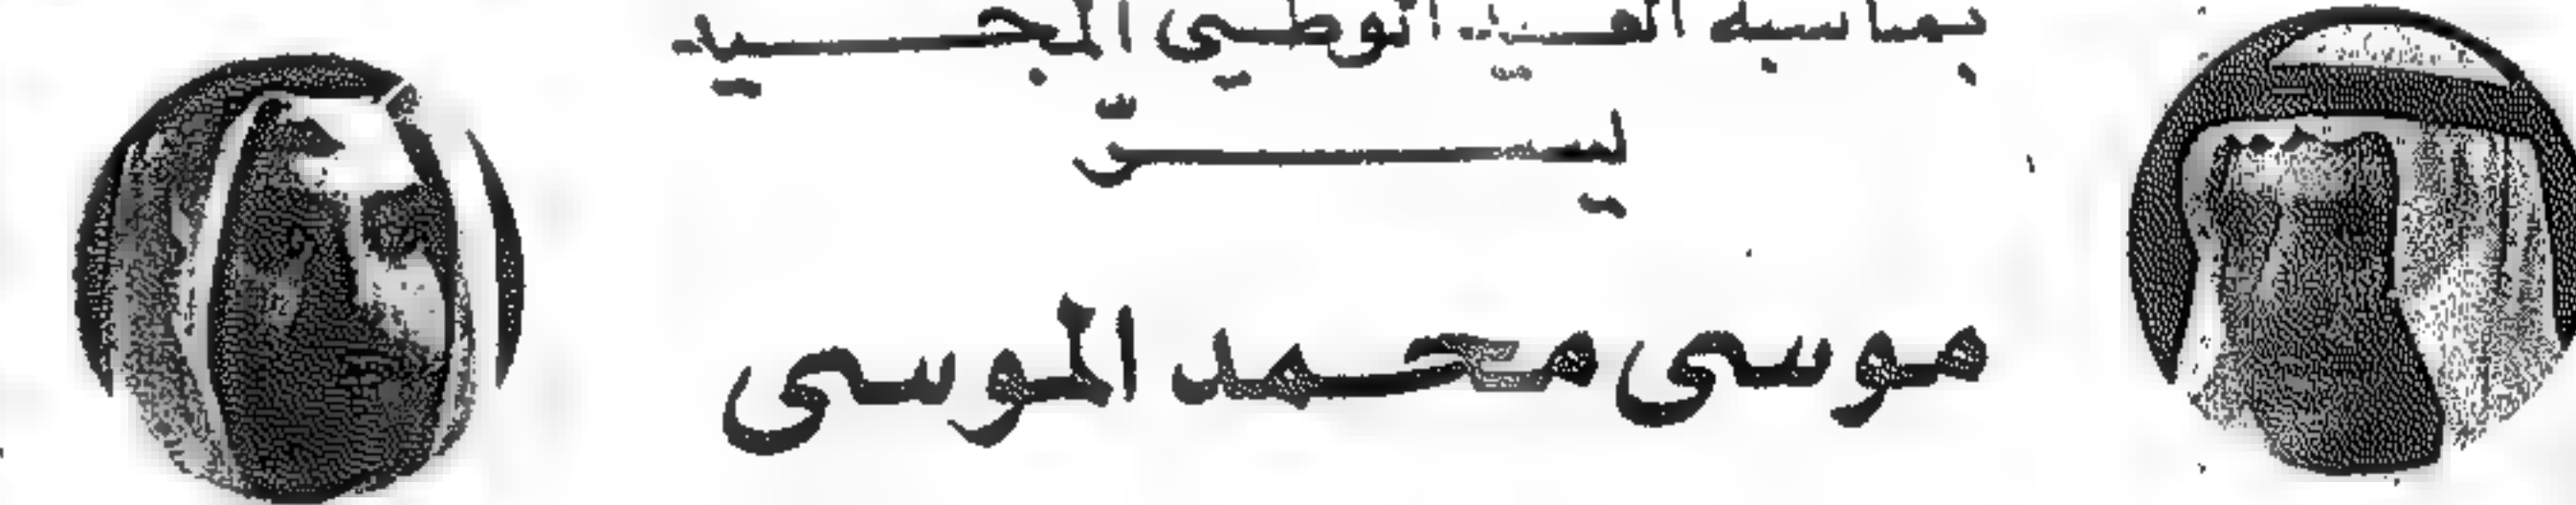 بمناسبة العيد الوطني المجيد
يسرّ
موسى محمد الموسى